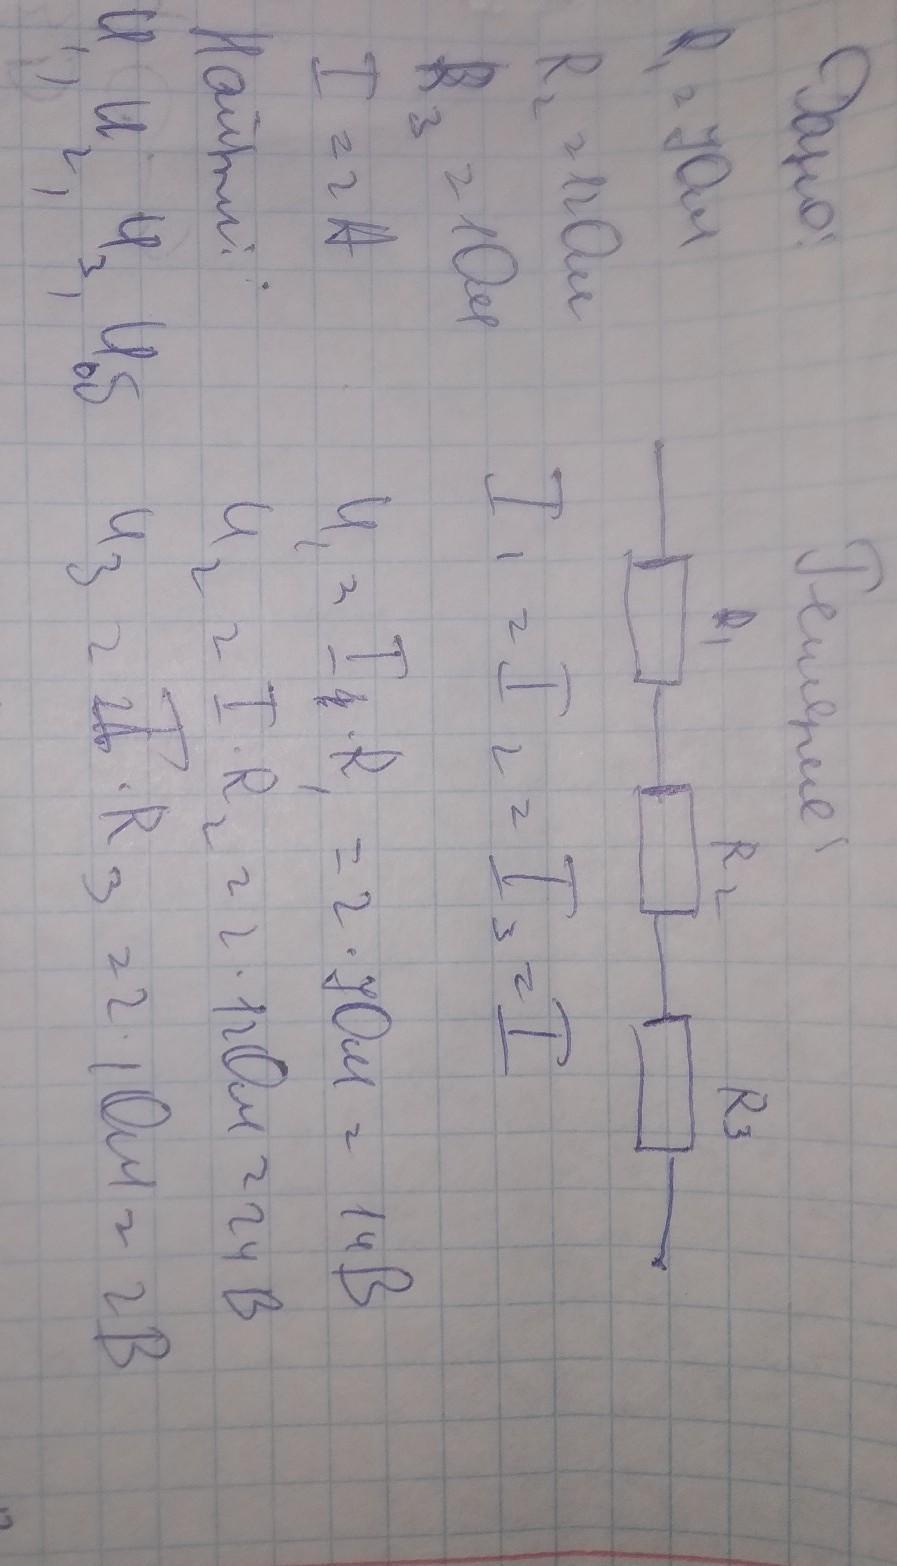 Дано:
R₁ = 7Ом
R₂ = 12Ом
R₃ = 1Ом
I = 2A
Найти:
U₁, U₂, U₃, Uоб
Решение:
R₁ R₂ R₃
I₁ = I₂ = I₃ = I
U₁ = I · R₁ = 2 · 7Ом = 14В
U₂ = I · R₂ = 2 · 12Ом = 24В
U₃ = I · R₃ = 2 · 1Ом = 2В